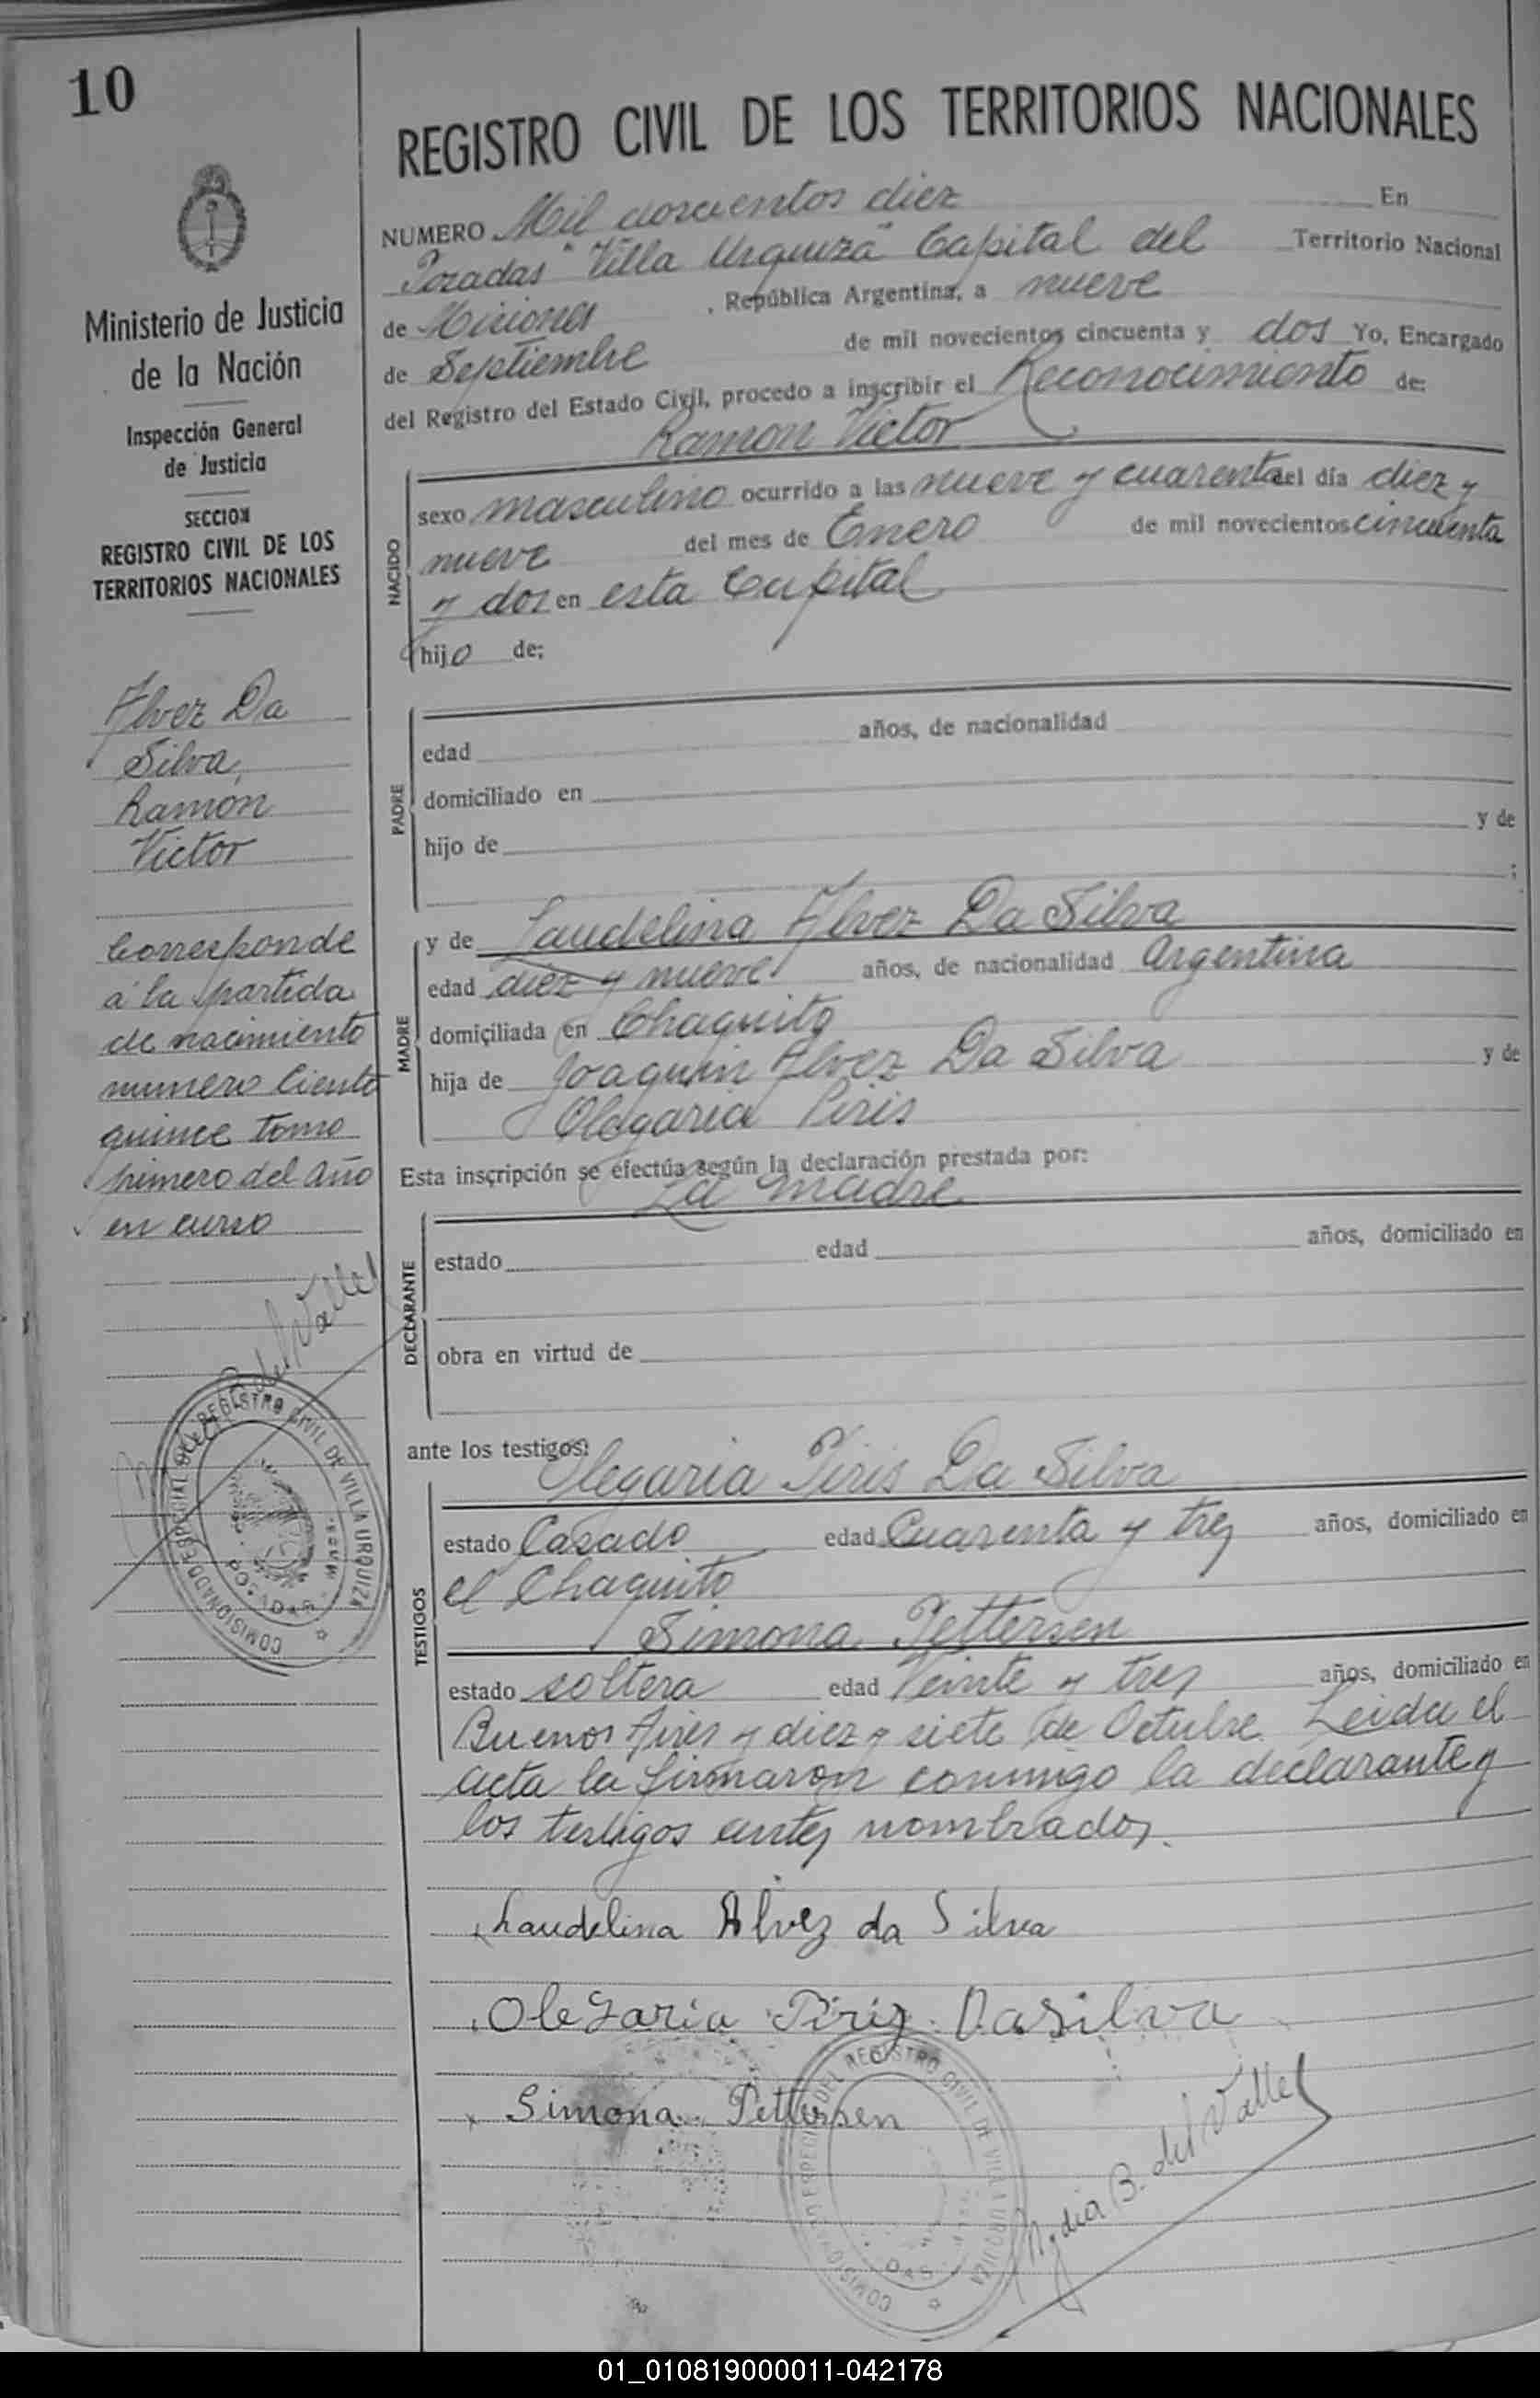 10
REGISTRO CIVIL DE LOS TERRITORIOS NACIONALES
NUMERO Mil doscientos diez En
Posadas "Villa Urquiza" Capital del Territorio Nacional
de Misiones, República Argentina, a nueve
de Septiembre de mil novecientos cincuenta y dos Yo, Encargado
del Registro del Estado Civil, procedo a inscribir el Reconocimiento de:
Ramon Victor
NACIDO
sexo masculino ocurrido a las nueve y cuarenta el día diez y
nueve del mes de Enero de mil novecientos cincuenta
y dos en esta Capital
hijo de:
PADRE
edad años, de nacionalidad
domiciliado en
hijo de y de
;
MADRE
y de Laudelina Alvez Da Silva
edad diez y nueve años, de nacionalidad Argentina
domiciliada en Chaquito
hija de Joaquin Alvez Da Silva y de
Olegaria Piris
Esta inscripción se efectúa según la declaración prestada por:
La madre
DECLARANTE
estado edad años, domiciliado en
obra en virtud de
ante los testigos:
Olegaria Piris Da Silva
TESTIGOS
estado Casado edad Cuarenta y tres años, domiciliado en
el Chaquito
Simona Pettersen
estado soltera edad Veinte y tres años, domiciliado en
Buenos Aires y diez y siete de Octubre. Leida el
acta la firmaron conmigo la declarante y
los testigos antes nombrados.
Laudelina Alvez da Silva
Olegaria Piriz Dasilva
Simona Pettersen
Nydia B. del Valle
COMISIONADO ESPECIAL DEL REGISTRO CIVIL DE VILLA URQUIZA
Ministerio de Justicia
de la Nación
Inspección General
de Justicia
SECCION
REGISTRO CIVIL DE LOS
TERRITORIOS NACIONALES
Alvez Da
Silva,
Ramón
Victor
Corresponde
a la partida
de nacimiento
numero Ciento
quince tomo
primero del año
en curso
B. del Valle
COMISIONADO ESPECIAL DEL REGISTRO CIVIL DE VILLA URQUIZA
POSADAS
01_010819000011-042178